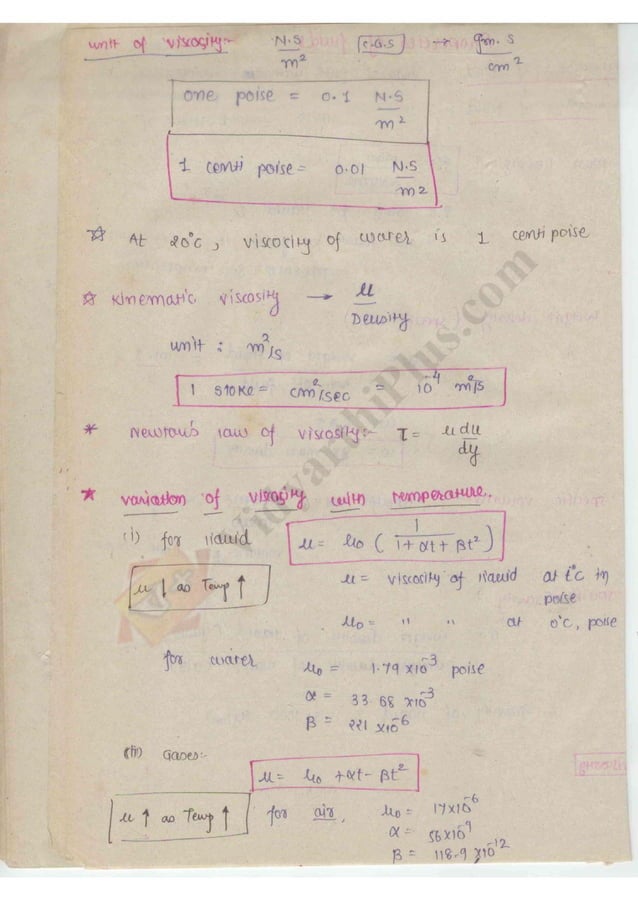 unit of viscosity:- N.S/m² C.G.S → gm.s/cm²
one poise = 0.1 N.S/m²
1 centi poise = 0.01 N.S/m²
At 20°C, viscosity of water is 1 centipoise
Kinematic viscosity → μ/Density
unit : m²/s
1 stoke = cm²/sec = 10⁻⁴ m²/s
* Newton's law of viscosity:- τ = μ du/dy
★ variation of viscosity with temperature.
(i) for liquid μ = μ₀ ( 1/(1+αt+βt²) )
μ ↓ as Temp ↑ μ = viscosity of liquid at t°c in poise
μ₀ = " " at 0°c, poise
for water μ₀ = 1.79 x10⁻³ poise
α = 33.68 x10⁻³
β = 221 x10⁻⁶
(ii) Gases:-
μ = μ₀ + αt - βt²
μ ↑ as Temp ↑ for air, μ₀ = 17x10⁻⁶
α = 56x10⁻⁹
β = 118.9 x10⁻¹²
VidyarthiPlus.com